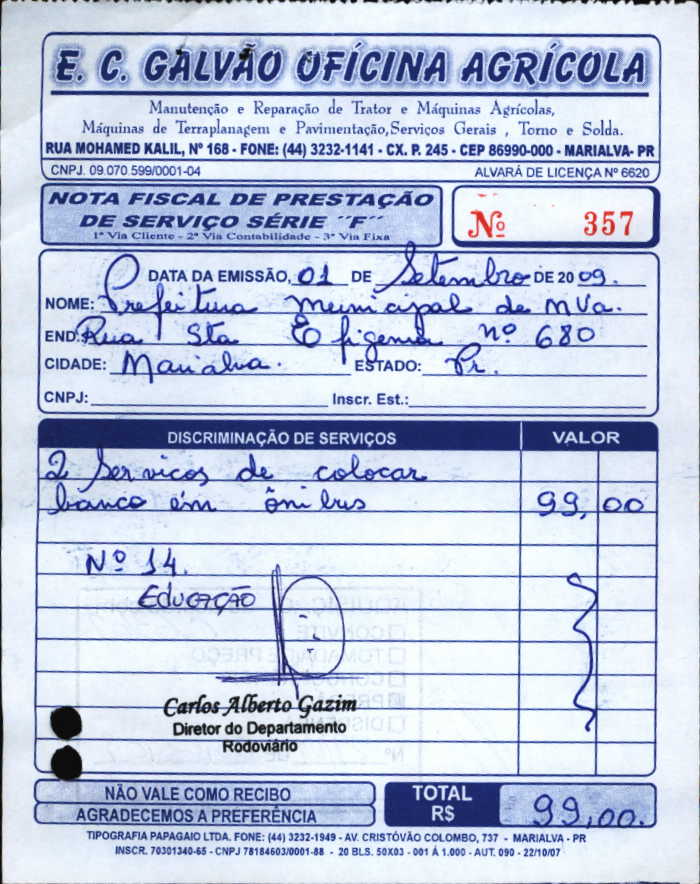 E. C. GALVÃO OFÍCINA AGRÍCOLA
Manutenção e Reparação de Trator e Máquinas Agrícolas,
Máquinas de Terraplanagem e Pavimentação, Serviços Gerais , Torno e Solda.
RUA MOHAMED KALIL, Nº 168 - FONE: (44) 3232-1141 - CX. P. 245 - CEP 86990-000 - MARIALVA- PR
CNPJ. 09.070 599/0001-04 ALVARÁ DE LICENÇA Nº 6620
NOTA FISCAL DE PRESTAÇÃO
DE SERVIÇO SÉRIE ´´F´´
1ª Via Cliente - 2ª Via Contabilidade - 3ª Via Fixa
Nº 357
DATA DA EMISSÃO, 01 DE Setembro DE 2009.
NOME: Prefeitura municipal de mva.
END: Rua Sta Efigenia nº 680
CIDADE: Marialva. ESTADO: Pr.
CNPJ: Inscr. Est.:
DISCRIMINAÇÃO DE SERVIÇOS VALOR
2 Serviços de colocar
banco em ônibus 99,00
Nº 14.
EDUCAÇÃO
Carlos Alberto Gazim
Diretor do Departamento
Rodoviário
NÃO VALE COMO RECIBO
AGRADECEMOS A PREFERÊNCIA
TOTAL
R$ 99,00.
TIPOGRAFIA PAPAGAIO LTDA. FONE: (44) 3232-1949 - AV. CRISTÓVÃO COLOMBO, 737 - MARIALVA - PR
INSCR. 70301340-65 - CNPJ 78184603/0001-88 - 20 BLS. 50X03 - 001 Á 1.000 - AUT. 090 - 22/10/07